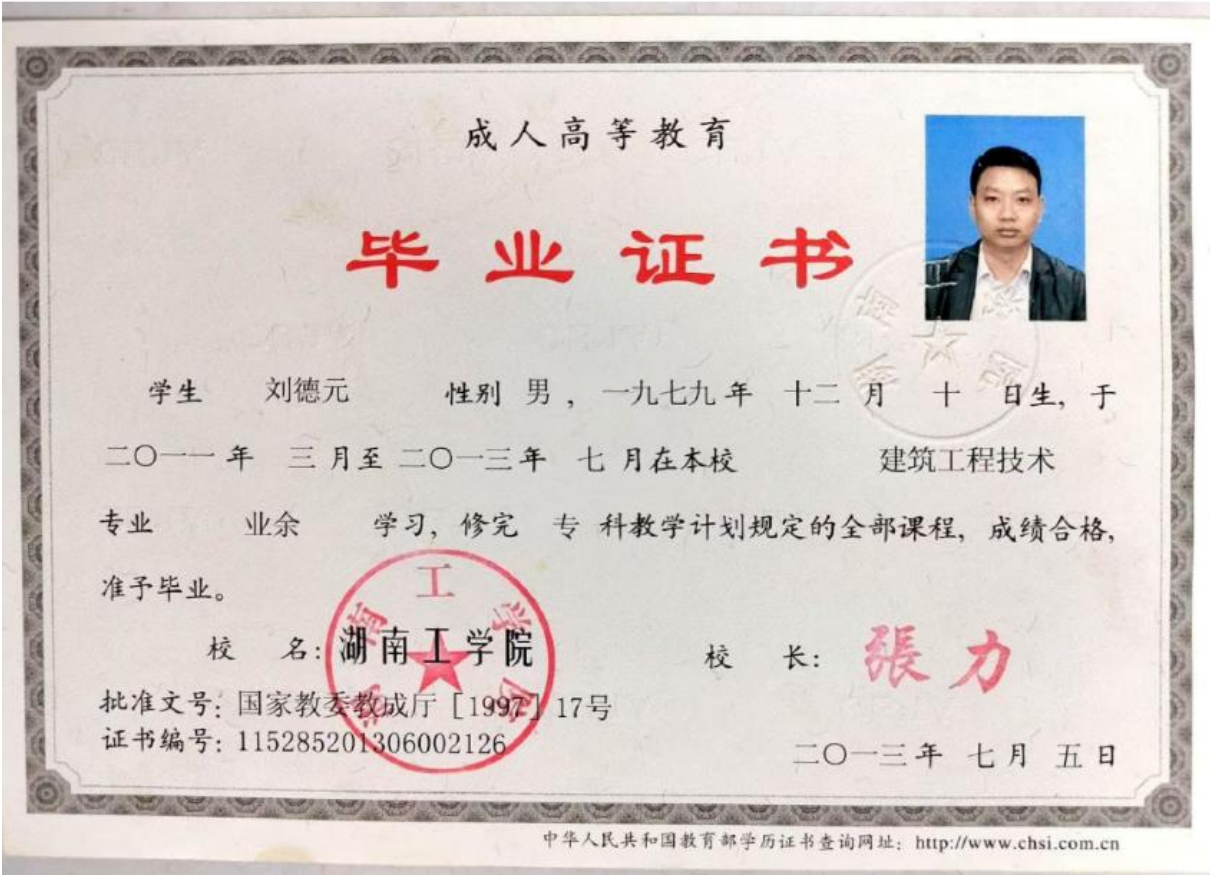 成人高等教育
毕业证书
学生 刘德元 性别 男 , 一九七九 年 十二 月 十 日生, 于
二〇一一 年 三 月至 二〇一三年 七 月在本校 建筑工程技术
专业 业余 学习, 修完 专 科教学计划规定的全部课程, 成绩合格,
准予毕业。
校 名: 湖南工学院 校 长: 張力
批准文号: 国家教委教成厅［1997］17号
证书编号: 115285201306002126
二〇一三年 七月 五日
湖南工学院
中华人民共和国教育部学历证书查询网址: http://www.chsi.com.cn